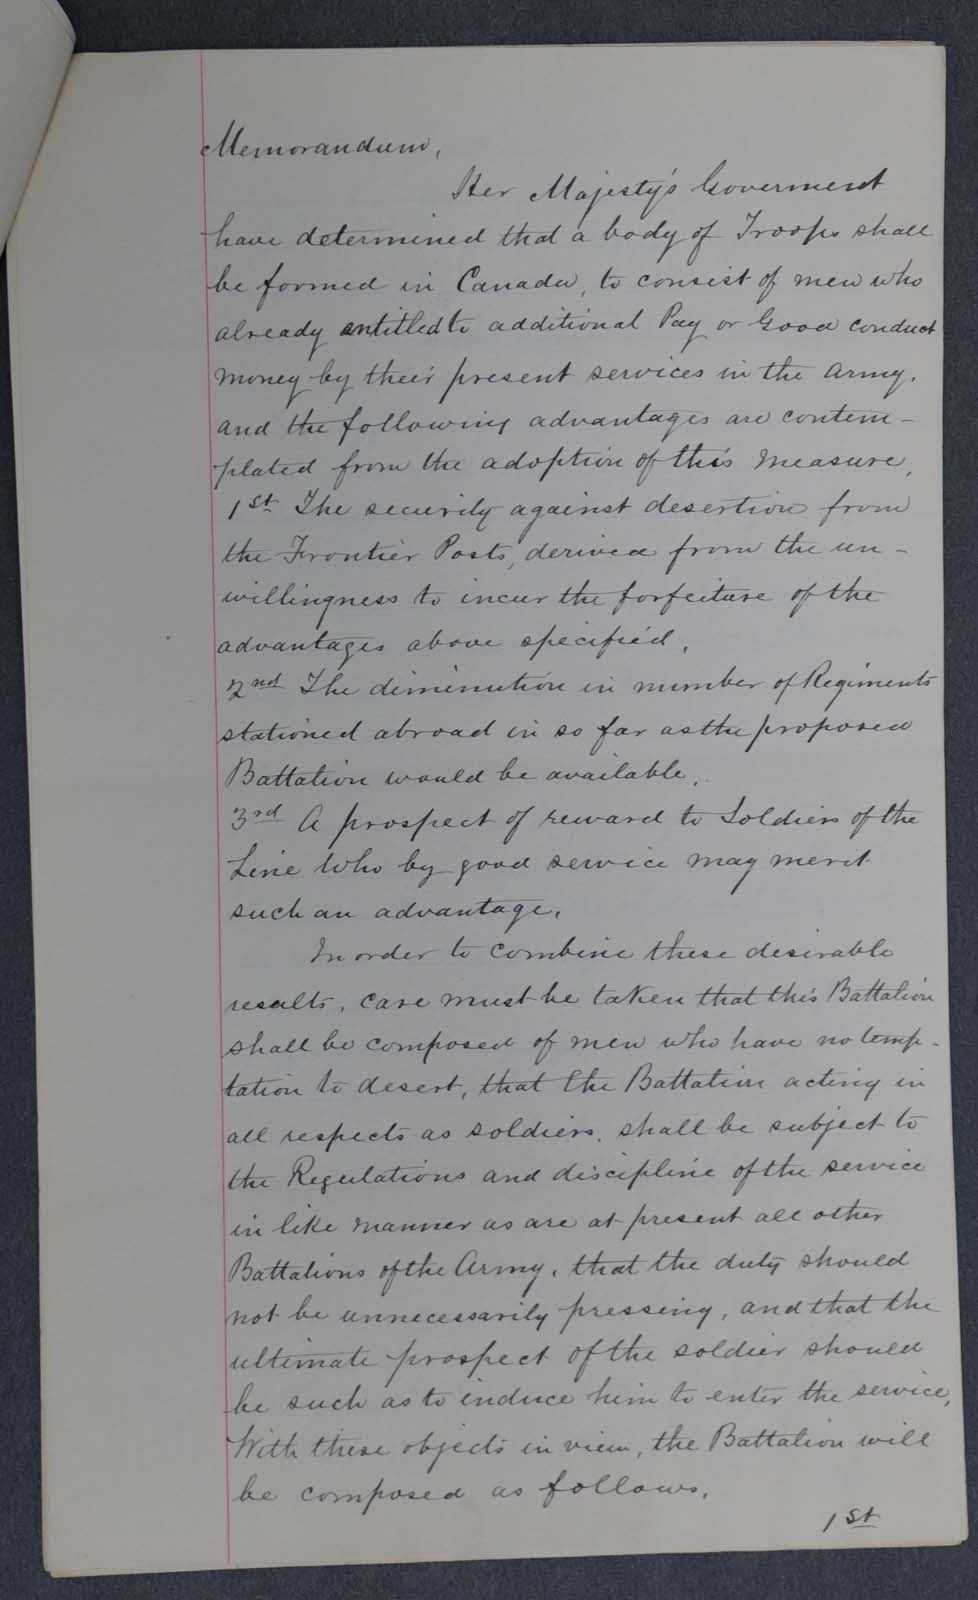 Memorandum,
Her Majesty's Goverment
have determined that a body of Troops shall
be formed in Canada, to consist of men who
already entitled to additional Pay or Good conduct
money by their present services in the Army.
and the following advantages are contem-
plated from the adoption of this measure,
1st The security against desertion from
the Frontier Posts, derived from the un-
willingness to incur the forfeiture of the
advantages above specified,
2nd The diminution in number of Regiments
stationed abroad in so far as the proposed
Battation would be available,
3rd A prospect of reward to Soldiers of the
Line Who by good service may merit
such an advantage.
In order to combine these desirable
results, care must be taken that this Battalion
shall be composed of men who have no temp-
tation to desert, that the Battation acting in
all respects as soldiers, shall be subject to
the Regulations and discipline of the service
in like manner as are at present all other
Battalions of the Army, that the duty should
not be unnecessarily pressing, and that the
ultimate prospect of the soldier should
be such as to induce him to enter the service,
With these objects in view, the Battalion will
be composed as follows,
1st